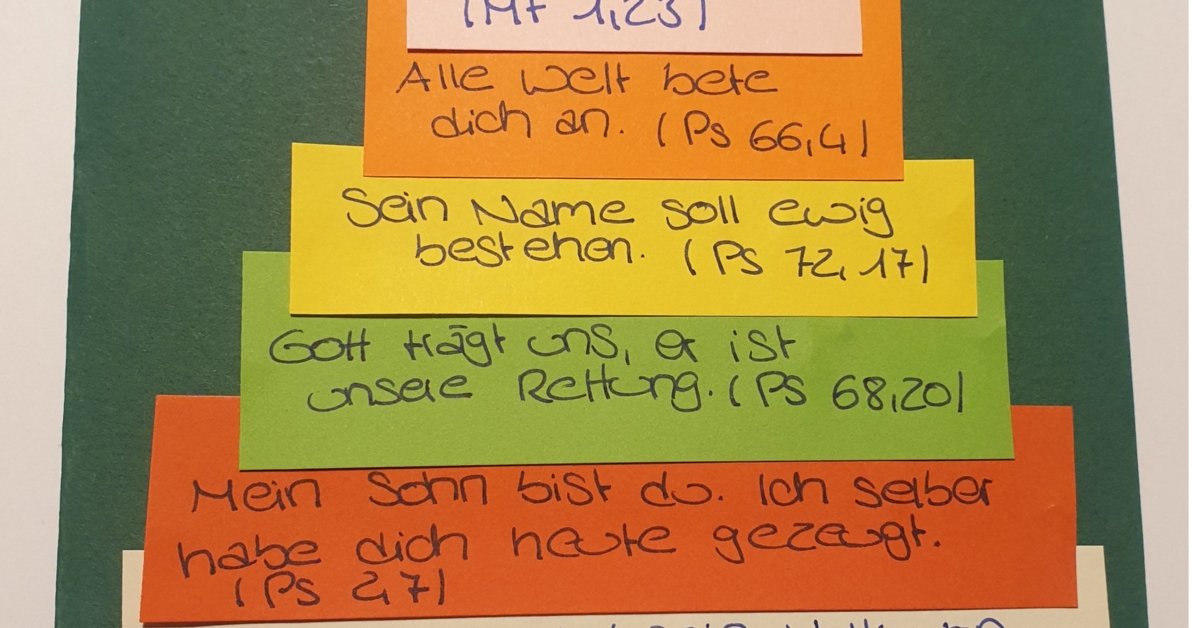 (Mt 1,23)
Alle Welt bete
dich an. (Ps 66,4)
Sein Name soll ewig
bestehen. (Ps 72,17)
Gott trägt uns, er ist
unsere Rettung. (Ps 68,20)
Mein Sohn bist du. Ich selber
habe dich heute gezeugt.
(Ps 2,7)